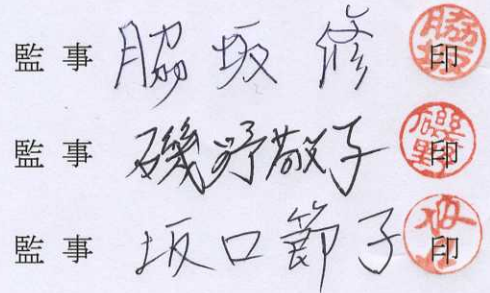 監事 脇坂 修 印
監事 磯野敬子 印
監事 坂口節子 印